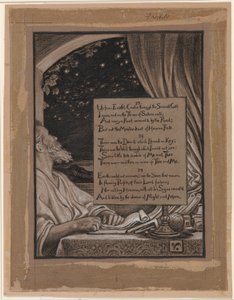 Up from Earth's Centre through the Seventh Gate
I rose, and on the Throne of Saturn sate,
And many a Knot unravel'd by the Road;
But not the Master-knot of Human Fate.
There was the Door to which I found no Key;
There was the Veil through which I might not see:
Some little talk awhile of Me and Thee
There was, and then no more of Thee and Me.
Earth could not answer; nor the Seas that mourn
In flowing Purple, of their Lord forlorn;
Nor rolling Heaven, with all his Signs reveal'd
And hidden by the sleeve of Night and Morn.